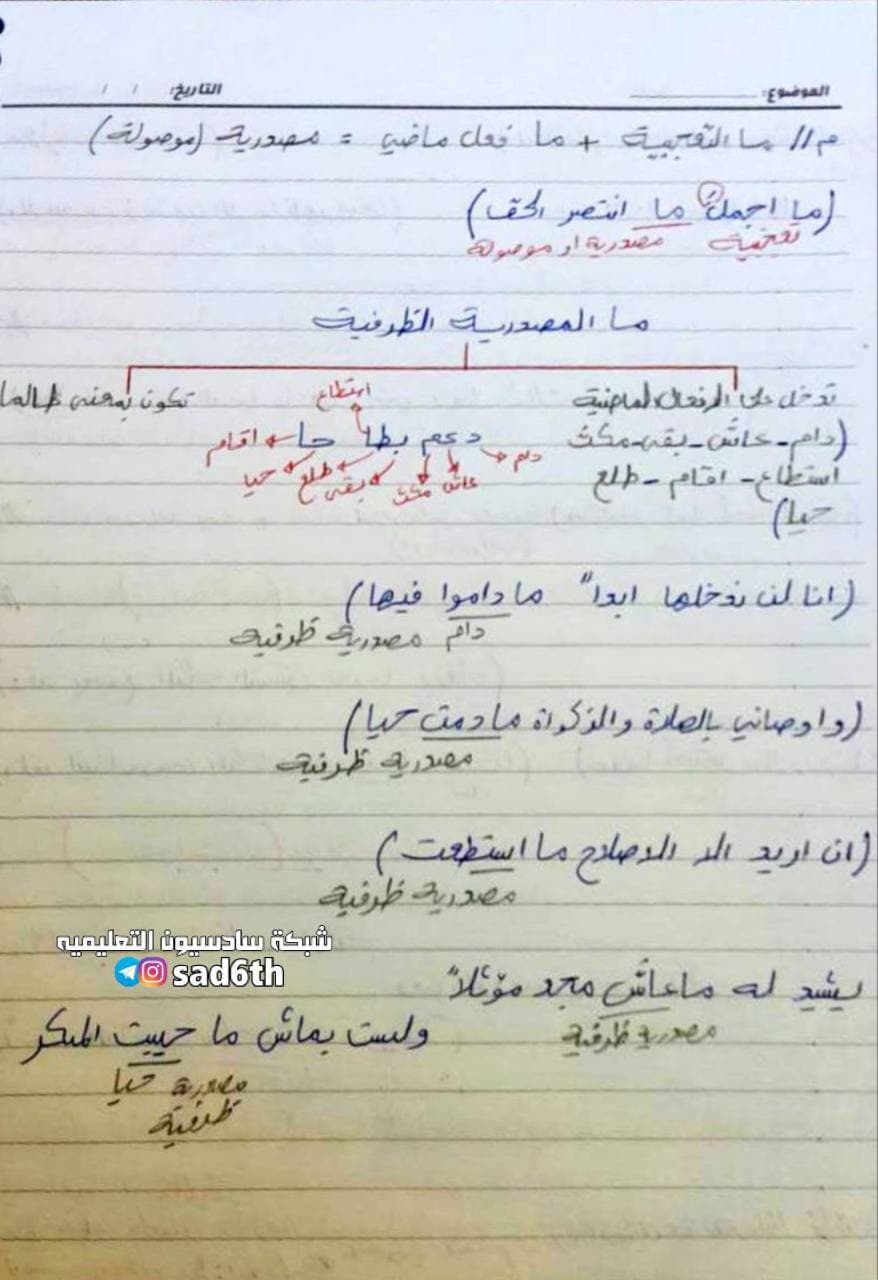 الموضوع: التاريخ: / /
م// ما التعجبية + ما فعل ماضي = مصدرية (موصولة)
(ما اجملَ ما انتصر الحق)
تعجبية مصدرية او موصولة
ما المصدرية الظرفية
تدخل على الافعال الماضية
(دام - عاش - بقى - مكث
استطاع - اقام - طلع
حيا)
تكون بمعنى طالما
استطاع
دعم بطا حا اقام
دام عاش مكث بقى طلع حيا
(انا لن ندخلها ابداً ما داموا فيها)
دام مصدرية ظرفية
(واوصاني بالصلاة والزكواة مادمت حيا)
مصدرية ظرفية
(ان اريد الا الاصلاح ما استطعت)
مصدرية ظرفية
شبكة سادسيون التعليميه
sad6th
يشيد له ماعاش مجد مؤثلاً
مصدرية ظرفية
ولست بماش ما حييت المنكر
مصدرية حيا
ظرفية